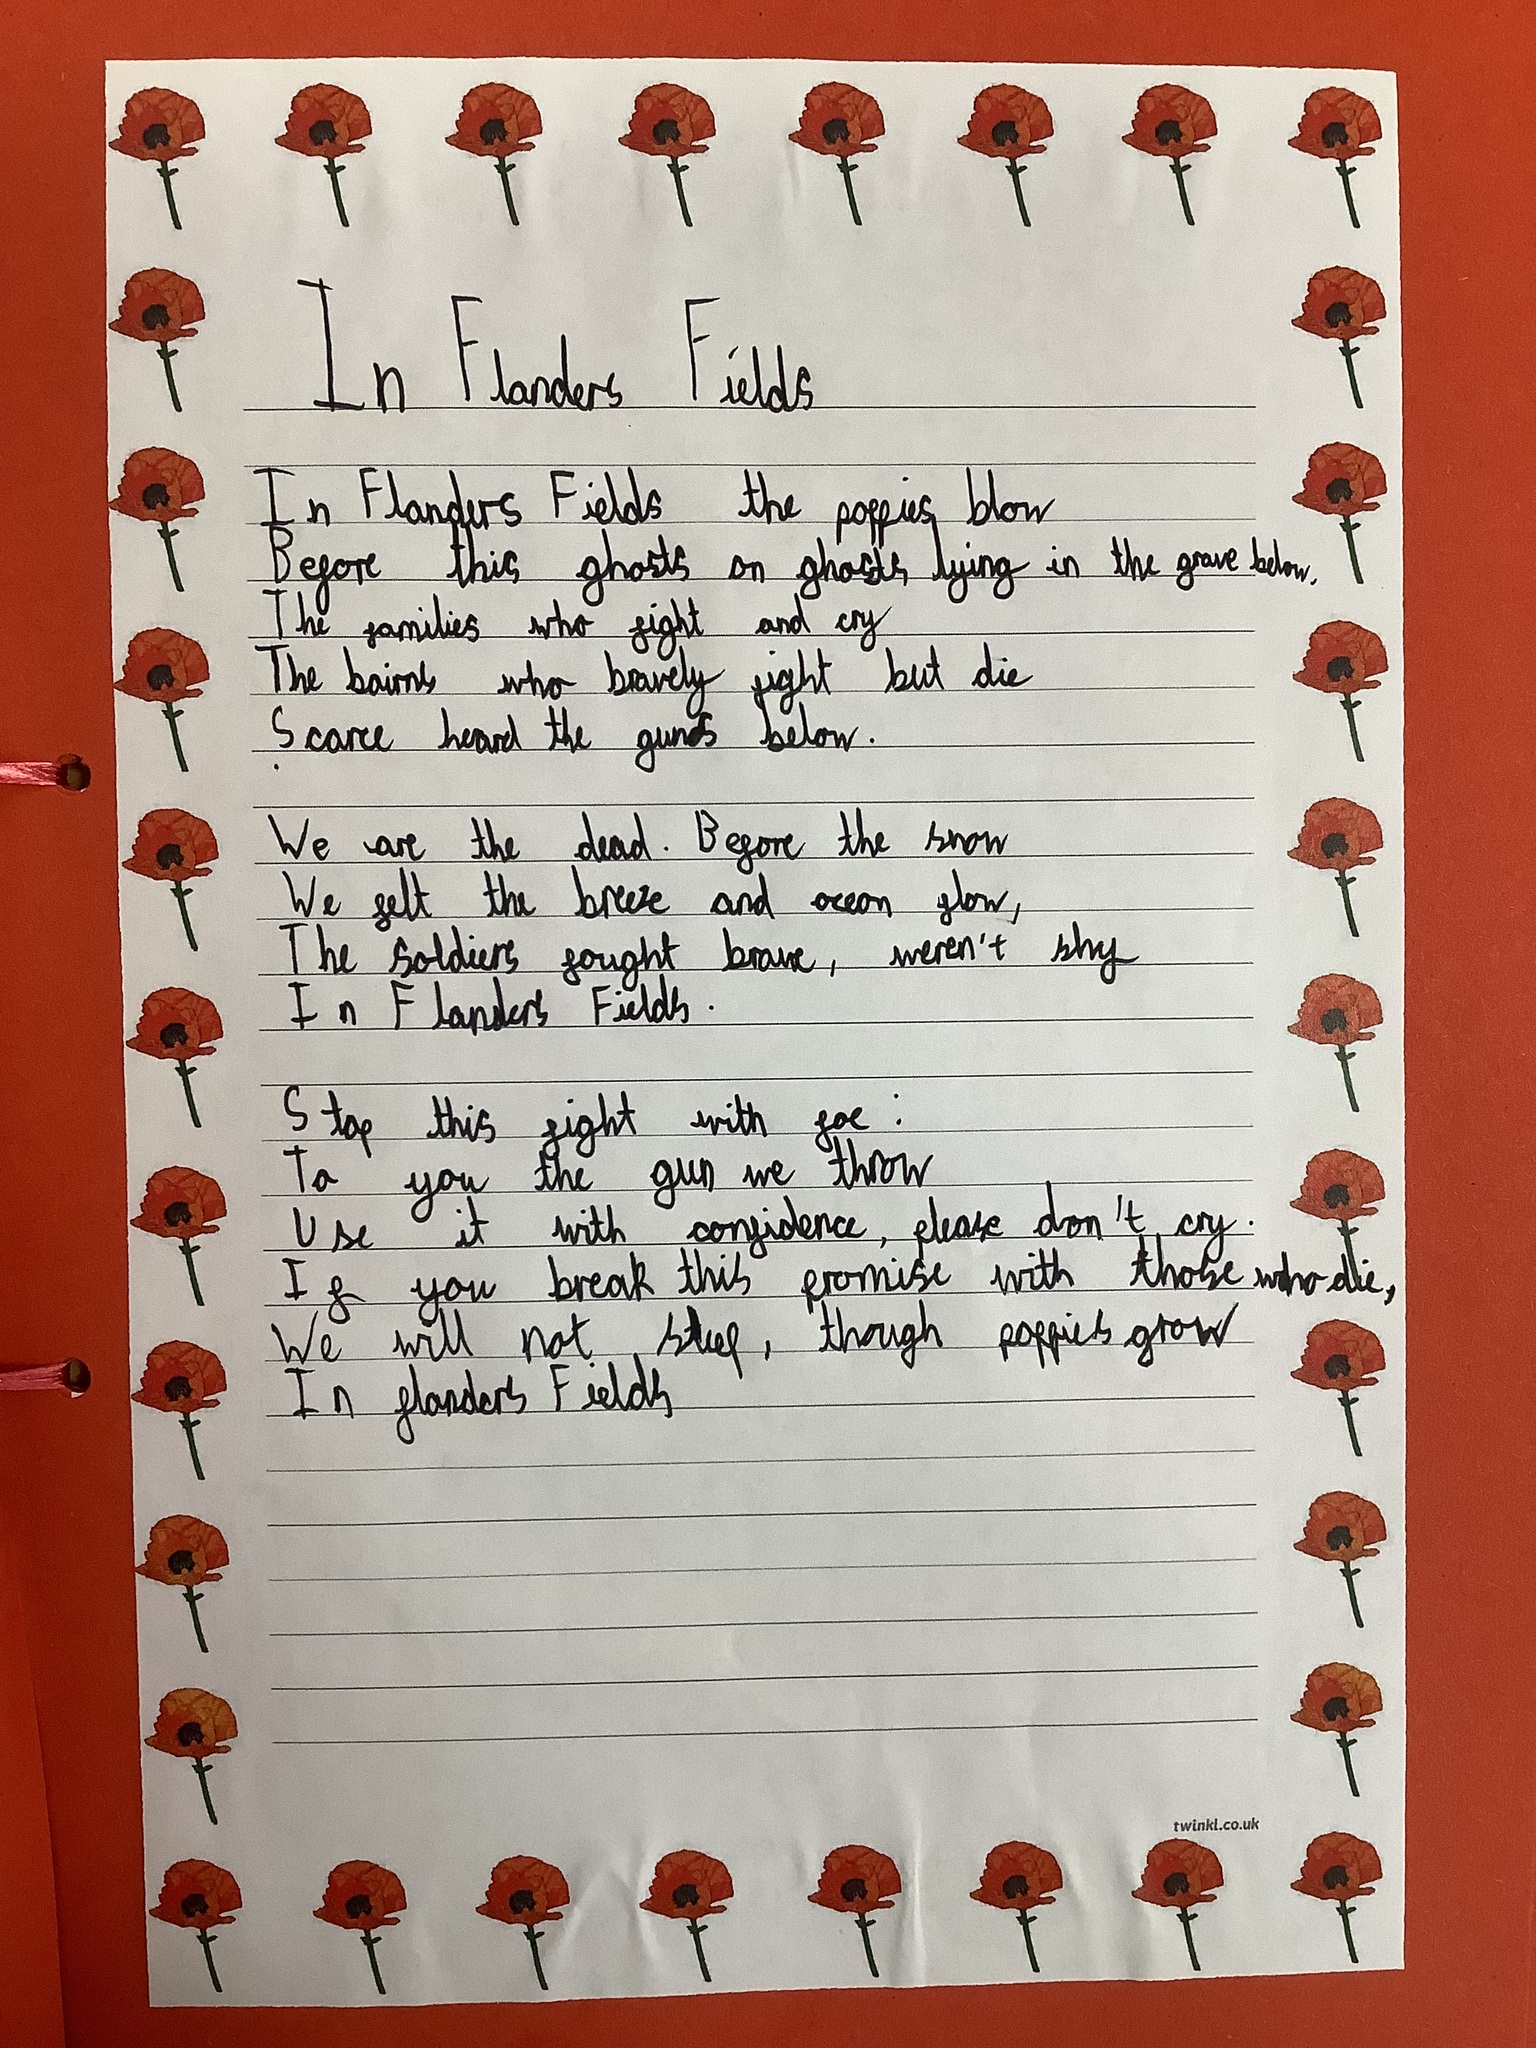 In Flanders Fields
In Flanders Fields the poppies blow
Before this ghosts on ghosts lying in the grave below.
The families who fight and cry
The bairns who bravely fight but die
Scarce heard the guns below.
We are the dead. Before the snow
We felt the breeze and ocean flow,
The soldiers fought brave, weren't shy
In Flanders Fields.
Stop this fight with foe:
To you the gun we throw
Use it with confidence, please don't cry.
If you break this promise with those who die,
We will not sleep, though poppies grow
In flanders Fields
twinkl.co.uk